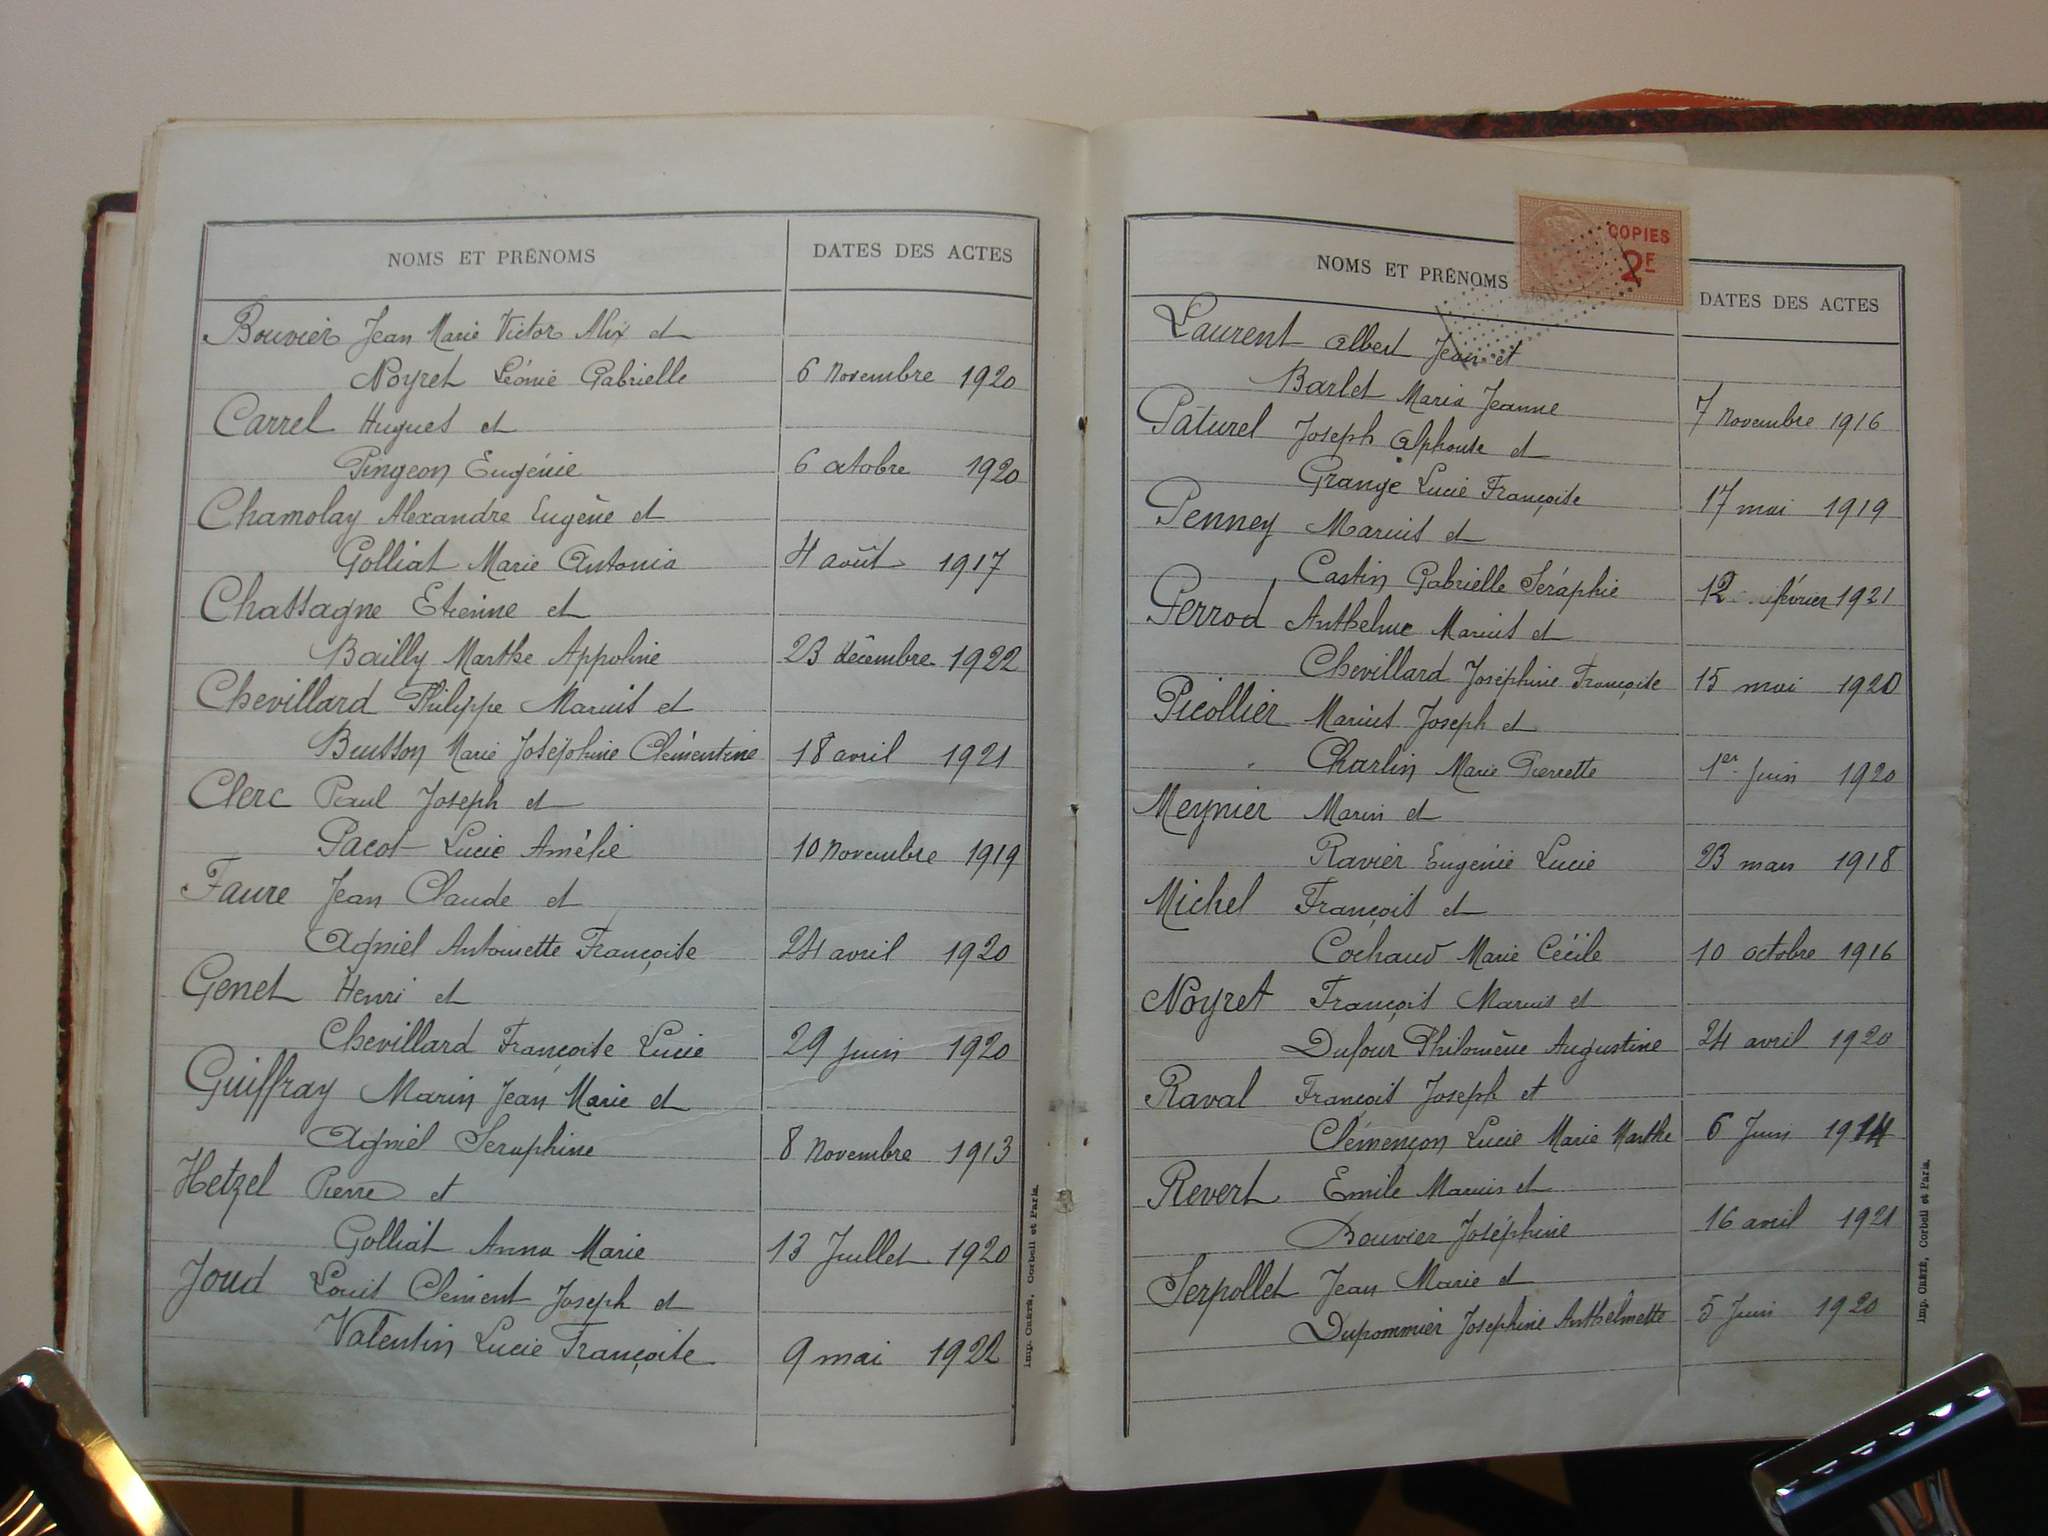 NOMS ET PRÉNOMS DATES DES ACTES
Bouvier Jean Marie Victor Alix et
Noyret Léonie Gabrielle 6 novembre 1920
Carrel Hugues et
Pingeon Eugénie 6 octobre 1920
Chamolay Alexandre Eugène et
Golliat Marie Antonia 4 août 1917
Chassagne Etienne et
Bailly Marthe Appoline 23 décembre 1922
Chevillard Philippe Marius et
Busson Marie Joséphine Clémentine 18 avril 1921
Clerc Paul Joseph et
Pacot Lucie Amélie 10 novembre 1919
Faure Jean Claude et
Agniel Antoinette Françoise 24 avril 1920
Genet Henri et
Chevillard Françoise Lucie 29 juin 1920
Guiffray Marin Jean Marie et
Agniel Seraphine 8 novembre 1913
Hetzel Pierre et
Golliat Anna Marie 13 Juillet 1920
Joud Louis Clément Joseph et
Valentin Lucie Françoise 9 mai 1922
Imp. CRÉTÉ, Corbeil et Paris.
COPIES
2F
NOMS ET PRÉNOMS DATES DES ACTES
Laurent Albert Jean et
Barlet Maria Jeanne 7 novembre 1916
Pâturel Joseph Alphonse et
Grange Lucie Françoise 17 mai 1919
Penney Marius et
Castin Gabrielle Séraphie 12 février 1921
Perrod Anthelme Marius et
Chevillard Joséphine Françoise 15 mai 1920
Picollier Marius Joseph et
Charlin Marie Pierrette 1er Juin 1920
Meynier Marin et
Ravier Eugénie Lucie 23 mars 1918
Michel François et
Cochaud Marie Cécile 10 octobre 1916
Noyret François Marius et
Dufour Philomène Augustine 24 avril 1920
Raval François Joseph et
Clémençon Lucie Marie Marthe 6 Juin 1914
Revert Emile Marius et
Bouvier Joséphine 16 avril 1921
Serpollet Jean Marie et
Dupommier Josephine Anthelmette 5 Juin 1920
Imp. CRÉTÉ, Corbeil et Paris.